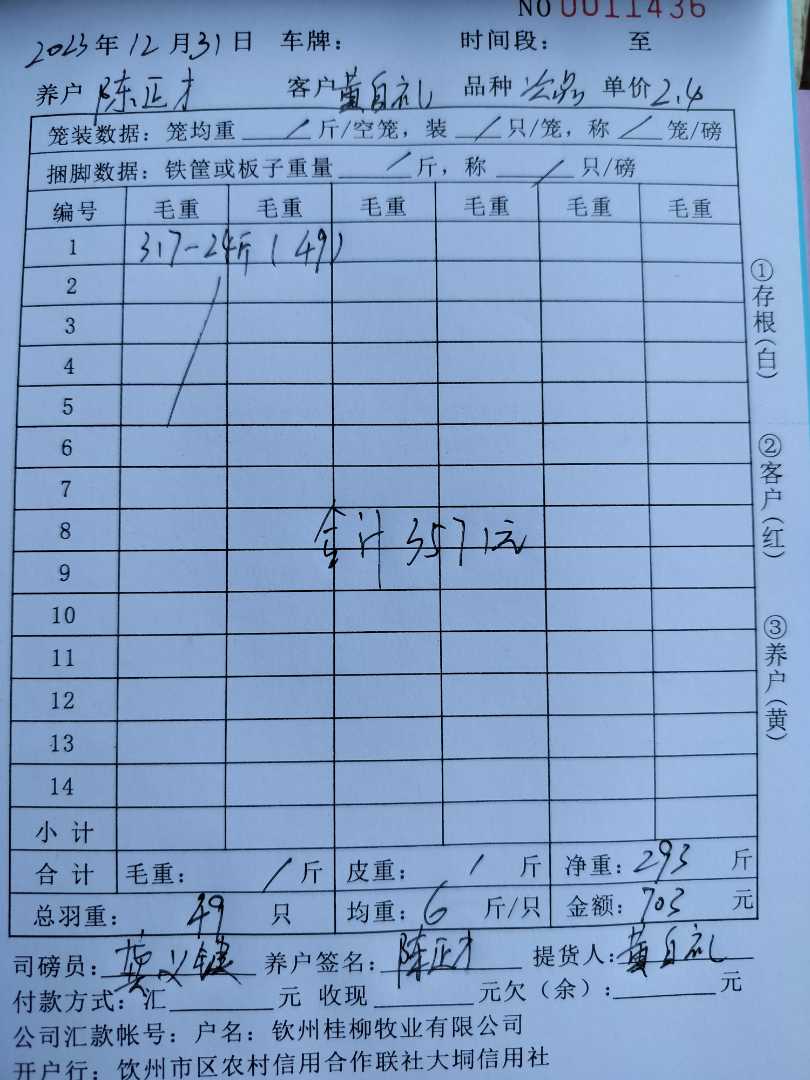 NO 0011436
2023年12月31日 车牌： 时间段： 至
养户 陈正才 客户黄自礼 品种 公品 单价2.4
笼装数据：笼均重 / 斤/空笼，装 / 只/笼，称 / 笼/磅
捆脚数据：铁筐或板子重量 / 斤，称 / 只/磅
编号 毛重 毛重 毛重 毛重 毛重 毛重
1 317-24斤(49)
2
3
4
5
6
7
8
合计3571元
9
10
11
12
13
14
小计
合计 毛重： / 斤 皮重： / 斤 净重：293 斤
总羽重： 49 只 均重：6 斤/只 金额：703 元
司磅员： 养户签名：陈正才 提货人：黄自礼
付款方式：汇 元 收现 元欠（余）： 元
公司汇款帐号：户名：钦州桂柳牧业有限公司
开户行：钦州市区农村信用合作联社大垌信用社
①存根(白)
②客户(红)
③养户(黄)